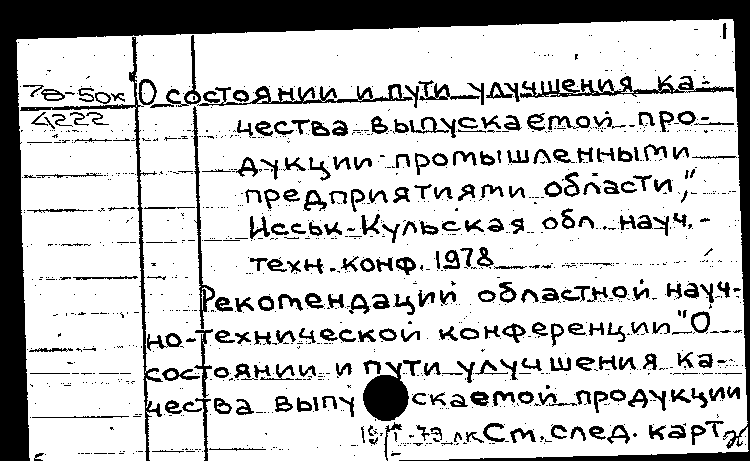 78-50к "О состоянии и пути улучшения ка-
4222 чества выпускаемой про-
дукции промышленными
предприятиями области,"
Иссык-Кульская обл. науч.-
техн. конф. 1978
Рекомендаций областной науч-
но-технической конференции "О
состоянии и пути улучшения ка-
чества выпускаемой продукции
См. след. карт.